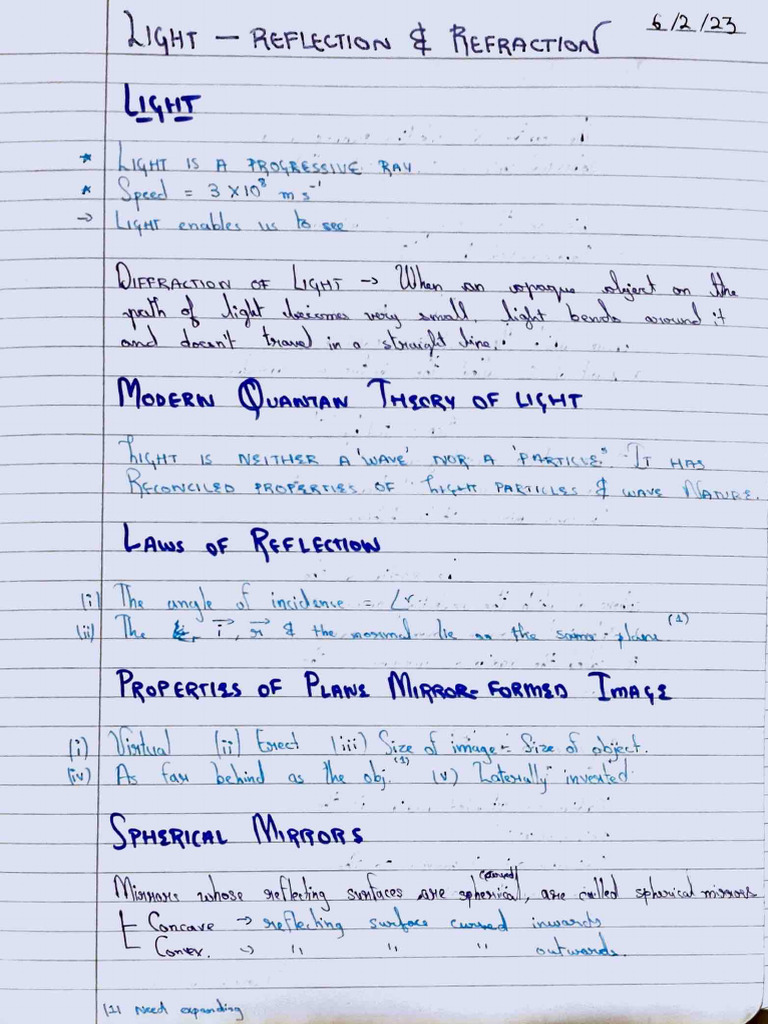 LIGHT — REFLECTION & REFRACTION
6/2/23
LIGHT
* LIGHT IS A PROGRESSIVE RAY.
* Speed = 3 × 10⁸ m s⁻¹
→ LIGHT enables us to see.
DIFFRACTION OF LIGHT → When an opaque object on the
path of light becomes very small, light bends around it
and doesn't travel in a straight line.
MODERN QUANTAN THEORY OF LIGHT
LIGHT IS NEITHER A 'WAVE' NOR A 'PARTICLE'. IT HAS
RECONCILED PROPERTIES OF LIGHT PARTICLES & WAVE NATURE.
LAWS OF REFLECTION
(i) The angle of incidence = ∠r
(ii) The i⃗, r⃗ & the normal lie on the same plane (1)
PROPERTIES OF PLANE MIRROR-FORMED IMAGE
(i) Virtual (ii) Erect (iii) Size of image = Size of object.
(iv) As far behind as the obj. (1) (v) Laterally inverted
SPHERICAL MIRRORS
(curved)
Mirrors whose reflecting surfaces are spherical, are called spherical mirrors
Concave → reflecting surface curved inwards
Convex. → " " " outwards.
(1) Need expanding